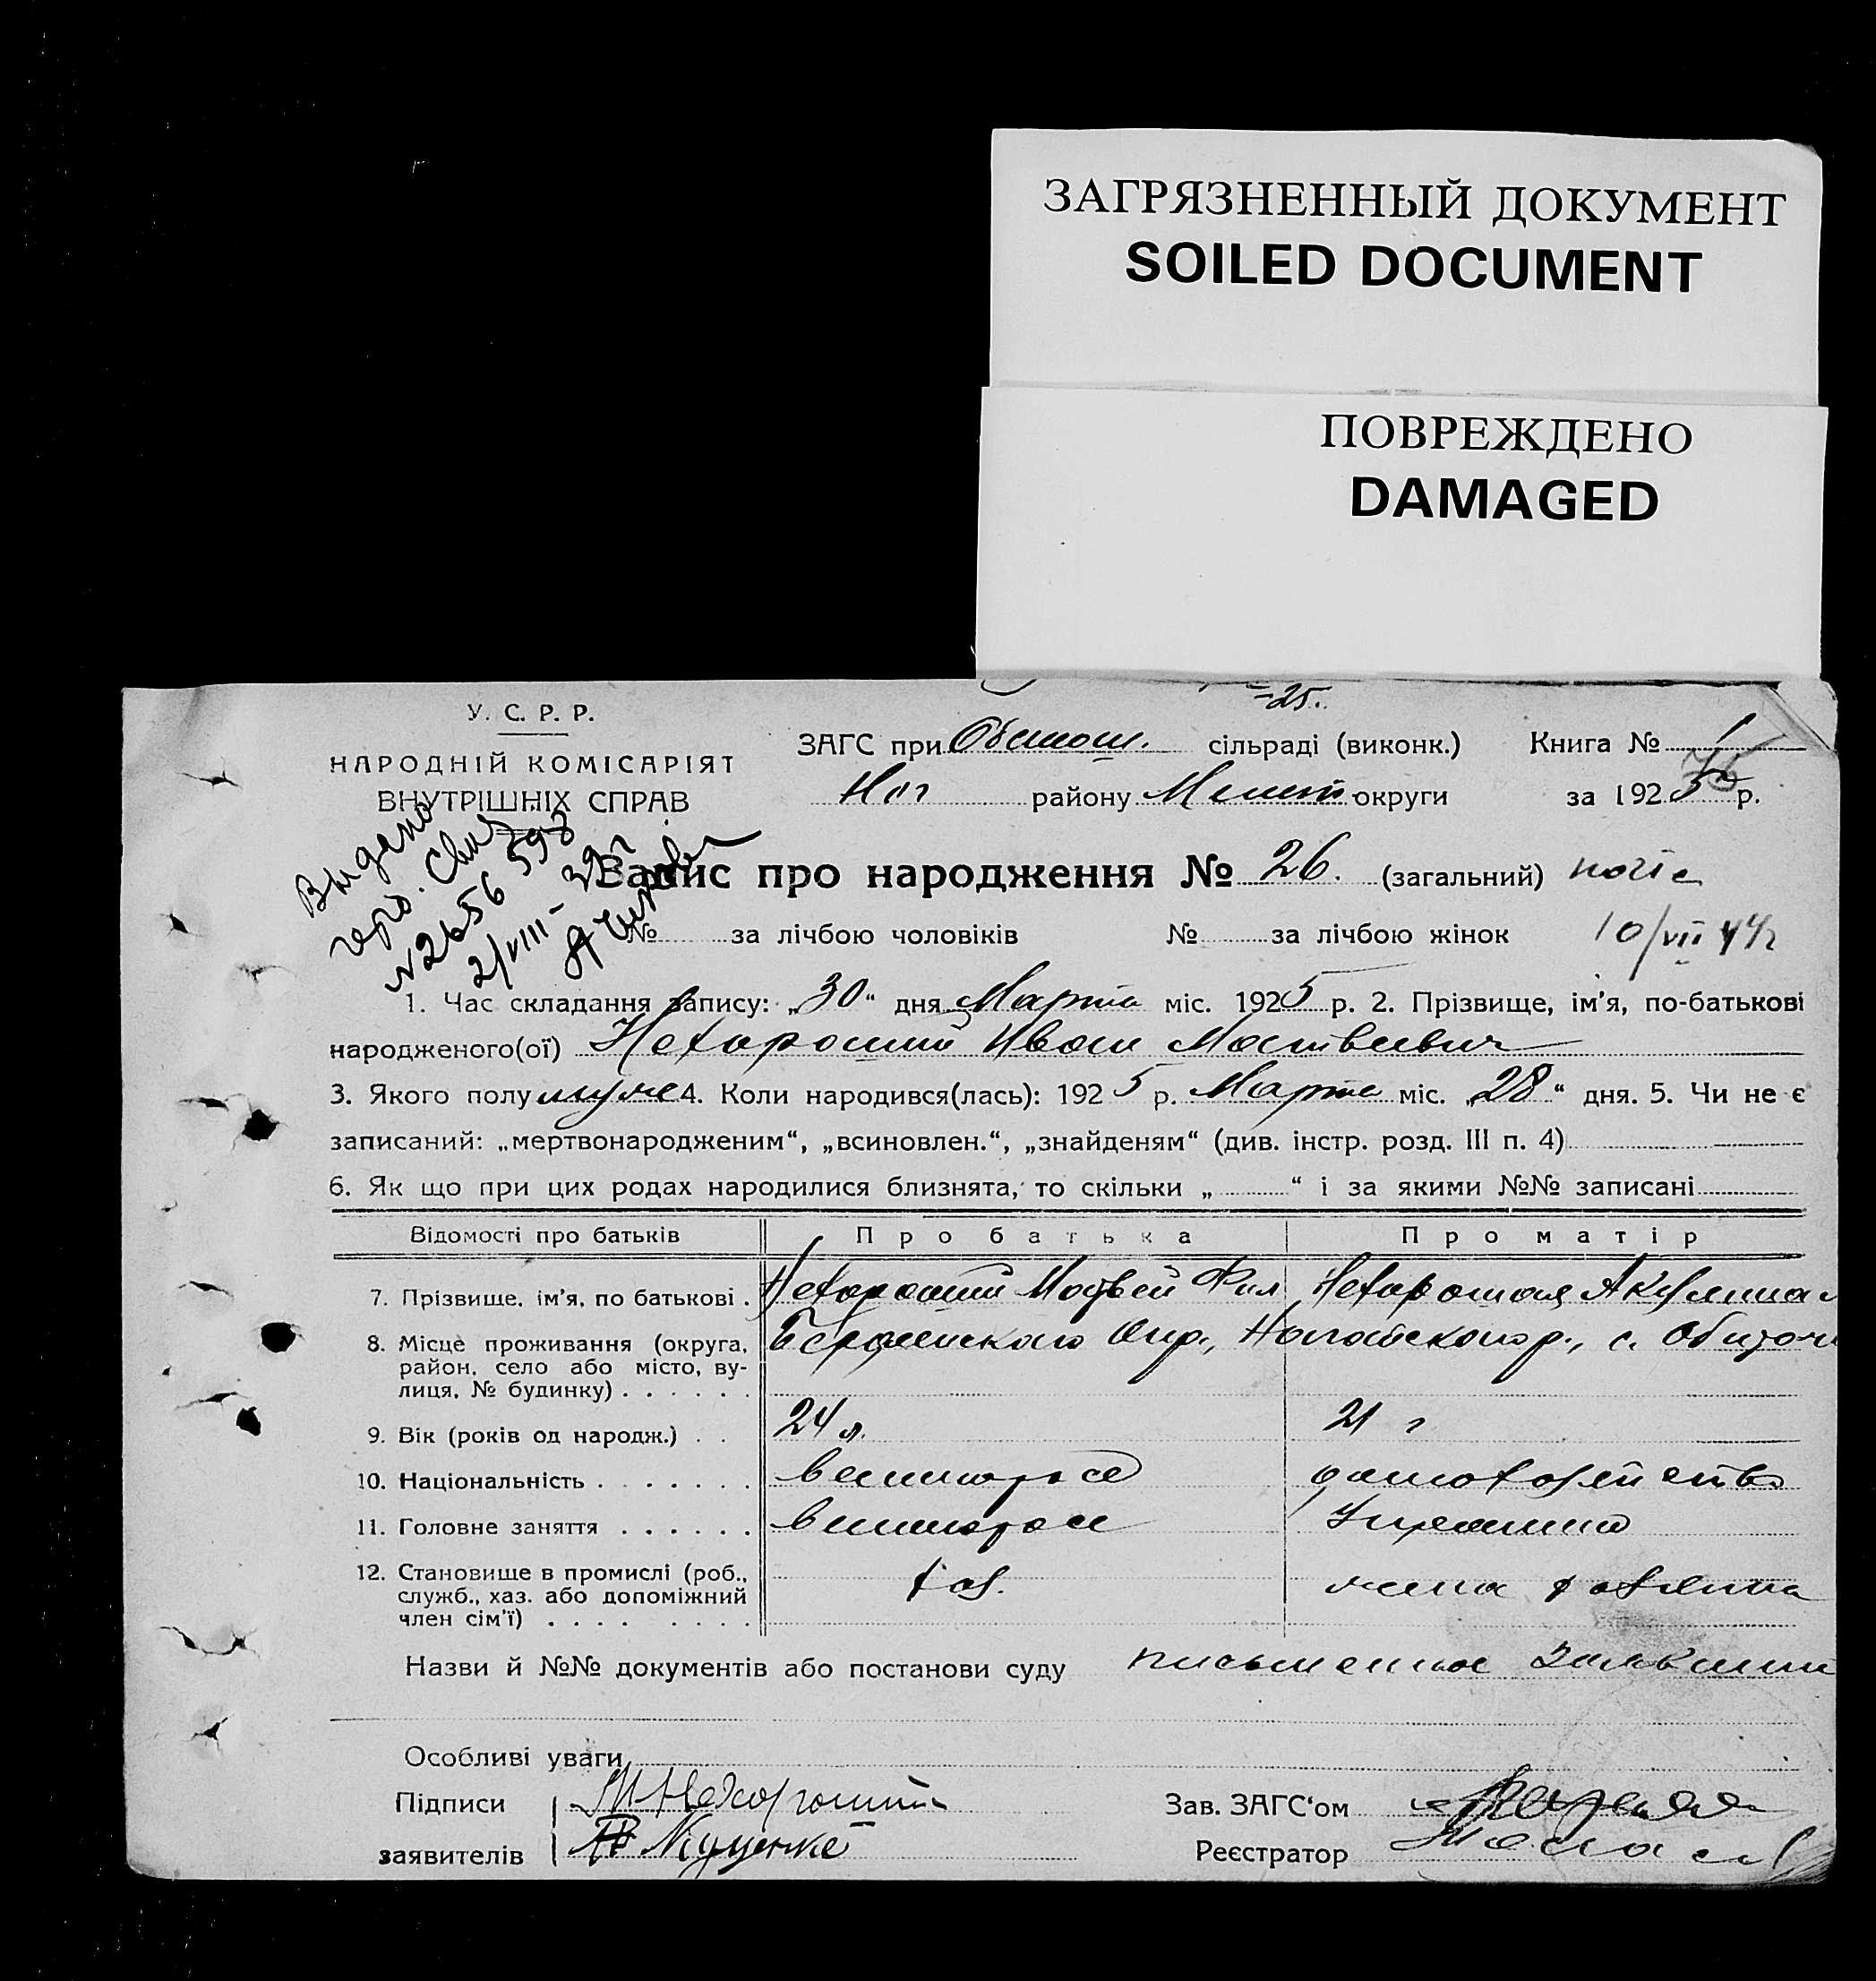 ЗАГРЯЗНЕННЫЙ ДОКУМЕНТ
SOILED DOCUMENT
ПОВРЕЖДЕНО
DAMAGED
-25.
У. С. Р. Р.
НАРОДНІЙ КОМІСАРІЯТ
ВНУТРІШНІХ СПРАВ
ЗАГС при сільраді (виконк.) Книга № 1
Ног району Мелит округи за 1925 р.
Выдено
№ 2656 593
2/VIII-
Запис про народження № 26. (загальний)
№ за лічбою чоловіків № за лічбою жінок 10/VII 44г
1. Час складання запису: „30“ дня Марта міс. 1925 р. 2. Прізвище, ім'я, по-батькові
народженого(ої) Нехороший Иван Матвеевич
3. Якого полу муже 4. Коли народився(лась): 1925 р. Марта міс. „28“ дня. 5. Чи не є
записаний: „мертвонародженим“, „всиновлен.“, „знайденям“ (див. інстр. розд. III п. 4)
6. Як що при цих родах народилися близнята, то скільки „ “ і за якими №№ записані
Відомості про батьків Про батька Про матір
7. Прізвище, ім'я, по батькові . Нехороший Матвей Фил Нехорошая Акулина
8. Місце проживання (округа, район, село або місто, вулиця, № будинку) . . . . . . Ногайского р., с. Обиточн
9. Вік (років од народж.) . . 24 л. 21 г
10. Національність . . . . . . . великоросс домохозяйство
11. Головне заняття . . . . . . великоросс Украинка
12. Становище в промислі (роб., служб., хаз. або допоміжний член сім'ї) . . . . . . . . хоз. жена хозяина
Назви й №№ документів або постанови суду письменное
Особливі уваги
Підписи М Нехороший Зав. ЗАГС'ом
заявителів Реєстратор